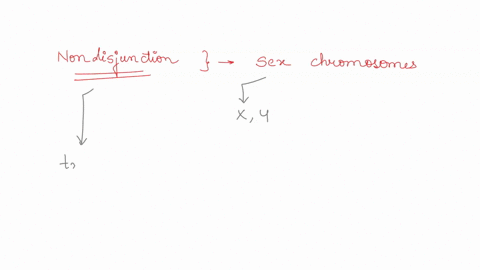 Nondisjunction } → sex chromosomes
x, y